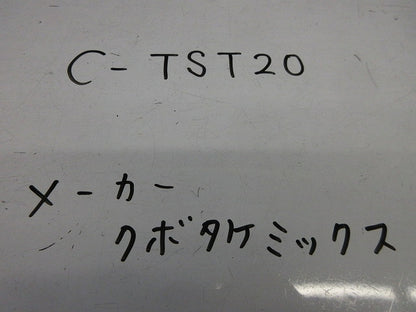 C-TST20
メーカー
クボタケミックス